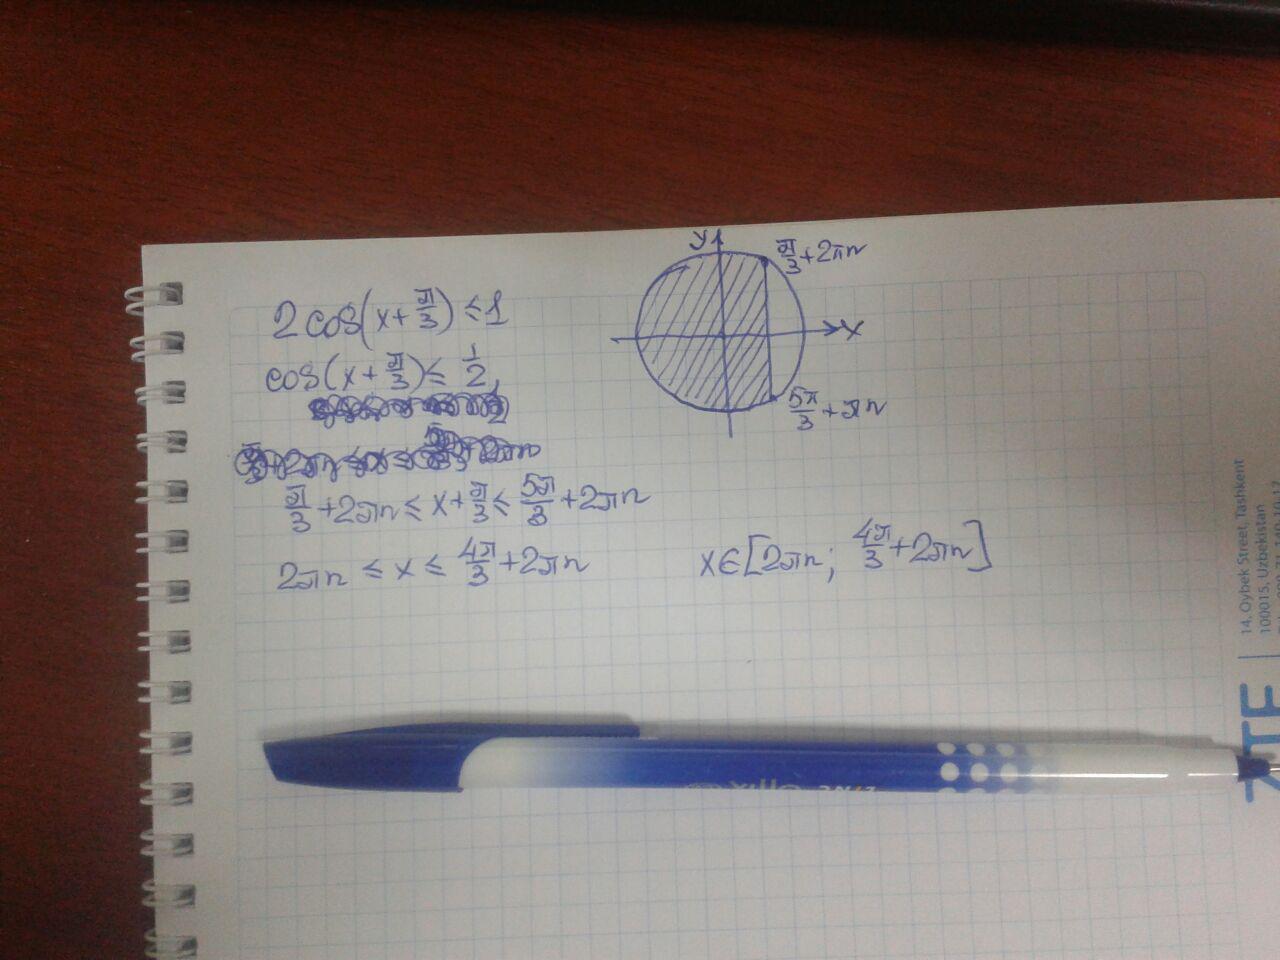 2cos(x+π/3) ≤1
cos(x+π/3) ≤ 1/2,
π/3+2πn ≤ x+π/3 ≤ 5π/3+2πn
2πn ≤ x ≤ 4π/3+2πn
y
π/3+2πn
x
5π/3+πn
x∈[2πn; 4π/3+2πn]
14, Oybek Street, Tashkent
100015, Uzbekistan
ZTE